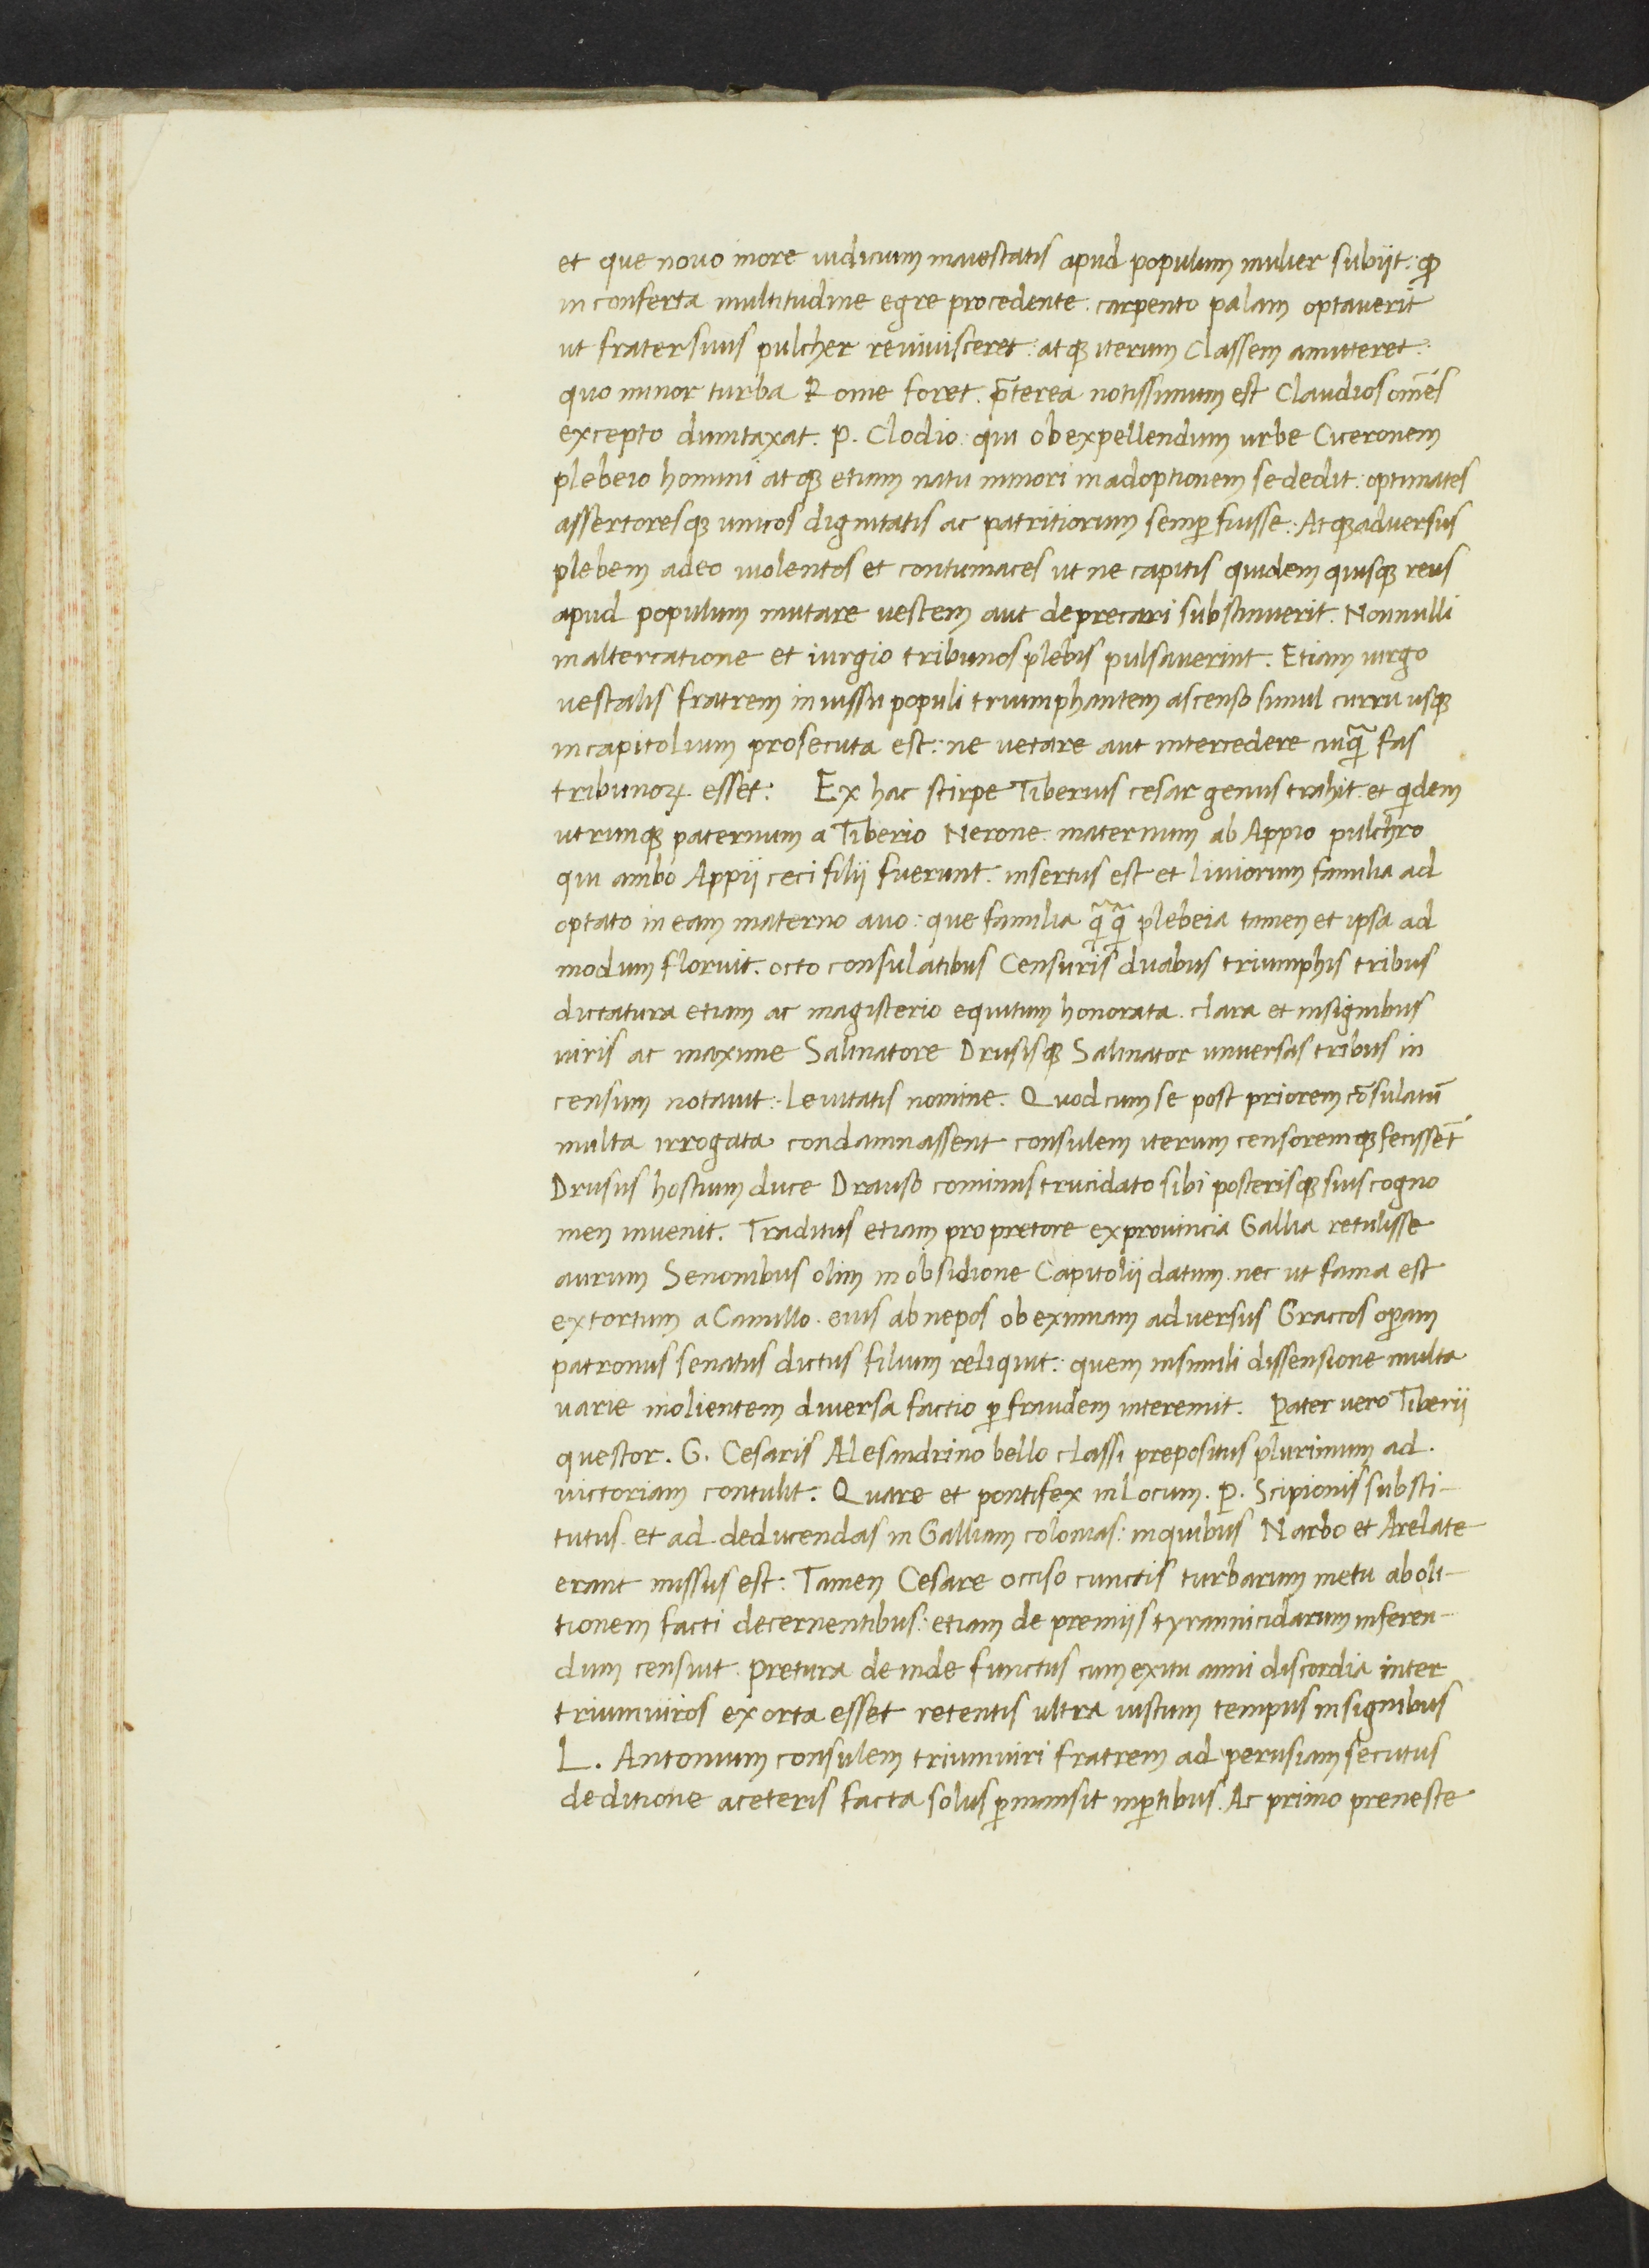 et que nouo more iudicium maiestatis apud populum mulier subijt: ꝙ
in conferta multitudine egre procedente carpento palam optauerit
ut frater suus pulcher reuiuisceret: atqꝫ iterum Classem amitteret:
quo minor turba Rome foret. p̄terea notissimum est Claudios om̄es
excepto dumtaxat. P. Clodio: qui ob expellendum urbe Ciceronem
plebeio homini atqꝫ etiam natu minori in adoptionem se dedit: optimates
assertoresqꝫ unicos dignitatis ac patritiorum semꝑ fuisse: Atqꝫ aduersus
plebem adeo uiolentos et contumaces ut ne capitis quidem quisqꝫ reus
apud populum mutare uestem aut deprecari substinuerit. Nonnulli
in altercatione et iurgio tribunos plebis pulsauerint. Etiam uirgo
uestalis fratrem iniussu populi triumphantem ascenso simul curru usqꝫ
in capitolium prosecuta est: ne uetare aut intercedere cuiq̄ fas
tribunoꝝ esset: Ex hac stirpe Tiberius cesar genus trahit: et qidem
utrunqꝫ paternum a Tiberio Nerone: maternum ab Appio pulchro
qui ambo Appij ceci filij fuerunt. insertus est et liuiorum familia ad
optato in eam materno auo: que familia q̄q̄ plebeia tamen et ipsa ad
modum floruit. octo consulatibus Censuris duabus triumphis tribus
dictatura etiam ac magisterio equitum honorata. clara et insignibus
uiris ac maxime Salinatore Drusisqꝫ Salinator uniuersas tribus in
censum notauit: leuitatis nomine. Quod cum se post priorem cōsulatū
multa irrogata condamnassent consulem iterum censoremqꝫ fecissēt
Drusus hostium duce Drauso cominus trucidato sibi posterisqꝫ suis cogno
men inuenit. Traditus etiam pro pretore ex prouincia Gallia retulisse
aurum Senonibus olim in obsidione Capitolij datum. nec ut fama est
extortum a Camillo. eius abnepos ob eximiam aduersus Graccos oꝑam
patronus senatus dictus filium reliquit: quem in simili dissensione multa
uarie molientem diuersa factio ꝑ fraudem interemit. Pater uero Tiberij
questor. G. Cesaris Alesandrino bello classi prepositus plurimum ad.
uictoriam contulit: Quare et pontifex in locum. P. Scipionis substi-
tutus et ad deducendas in Galliam colonias: in quibus Narbo et Arelate
erant missus est: Tamen Cesare occiso cunctis turbarum metu aboli-
tionem facti decernentibus: etiam de premijs tyrannicidarum inferen-
dum censuit. pretura deinde functus cum exitu anni discordia inter
triumuiros exorta esset retentis ultra iustum tempus insignibus
L. Antonium consulem triumuiri fratrem ad perusiam secutus
deditione a ceteris facta solus ꝑmansit in ꝑtibus. Ac primo preneste